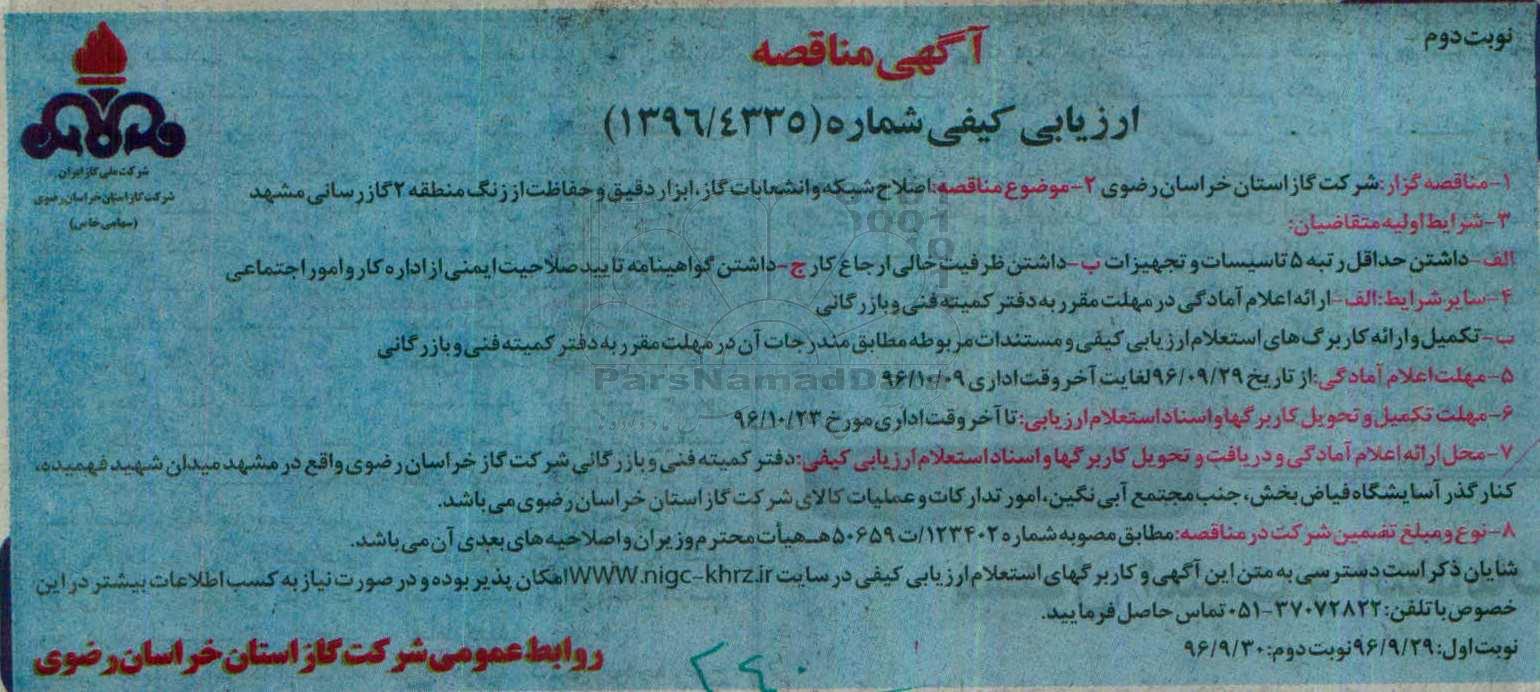 نوبت دوم
آگهی مناقصه
ارزیابی کیفی شماره (۱۳۹٦/٤۳۳٥)
شرکت ملی گاز ایران
شرکت گاز استان خراسان رضوی
(سهامی خاص)
۱-مناقصه گزار: شرکت گاز استان خراسان رضوی ۲-موضوع مناقصه: اصلاح شبکه و انشعابات گاز، ابزار دقیق و حفاظت از زنگ منطقه ۲ گازرسانی مشهد
۳-شرایط اولیه متقاضیان:
الف-داشتن حداقل رتبه ۵ تاسیسات و تجهیزات ب-داشتن ظرفیت خالی ارجاع کار ج-داشتن گواهینامه تایید صلاحیت ایمنی از اداره کار و امور اجتماعی
۴-سایر شرایط: الف-ارائه اعلام آمادگی در مهلت مقرر به دفتر کمیته فنی و بازرگانی
ب-تکمیل و ارائه کاربرگ های استعلام ارزیابی کیفی و مستندات مربوطه مطابق مندرجات آن در مهلت مقرر به دفتر کمیته فنی و بازرگانی
۵-مهلت اعلام آمادگی: از تاریخ ۹۶/۰۹/۲۹ لغایت آخر وقت اداری ۹۶/۱۰/۰۹
ParsNamadData
۶-مهلت تکمیل و تحویل کاربرگها و اسناد استعلام ارزیابی: تا آخر وقت اداری مورخ ۹۶/۱۰/۲۳
۷-محل ارائه اعلام آمادگی و دریافت و تحویل کاربرگها و اسناد استعلام ارزیابی کیفی: دفتر کمیته فنی و بازرگانی شرکت گاز خراسان رضوی واقع در مشهد میدان شهید فهمیده،
کنار گذر آسایشگاه فیاض بخش، جنب مجتمع آبی نگین، امور تدارکات و عملیات کالای شرکت گاز استان خراسان رضوی می باشد.
۸-نوع و مبلغ تضمین شرکت در مناقصه: مطابق مصوبه شماره ۱۲۳۴۰۲/ت ۵۰۶۵۹ هـ هیأت محترم وزیران و اصلاحیه های بعدی آن می باشد.
شایان ذکر است دسترسی به متن این آگهی و کاربرگهای استعلام ارزیابی کیفی در سایت WWW.nigc-khrz.ir امکان پذیر بوده و در صورت نیاز به کسب اطلاعات بیشتر در این
خصوص با تلفن: ۳۷۰۷۲۸۲۲-۰۵۱ تماس حاصل فرمایید.
نوبت اول: ۹۶/۹/۲۹ نوبت دوم: ۹۶/۹/۳۰
روابط عمومی شرکت گاز استان خراسان رضوی
۲۴۰